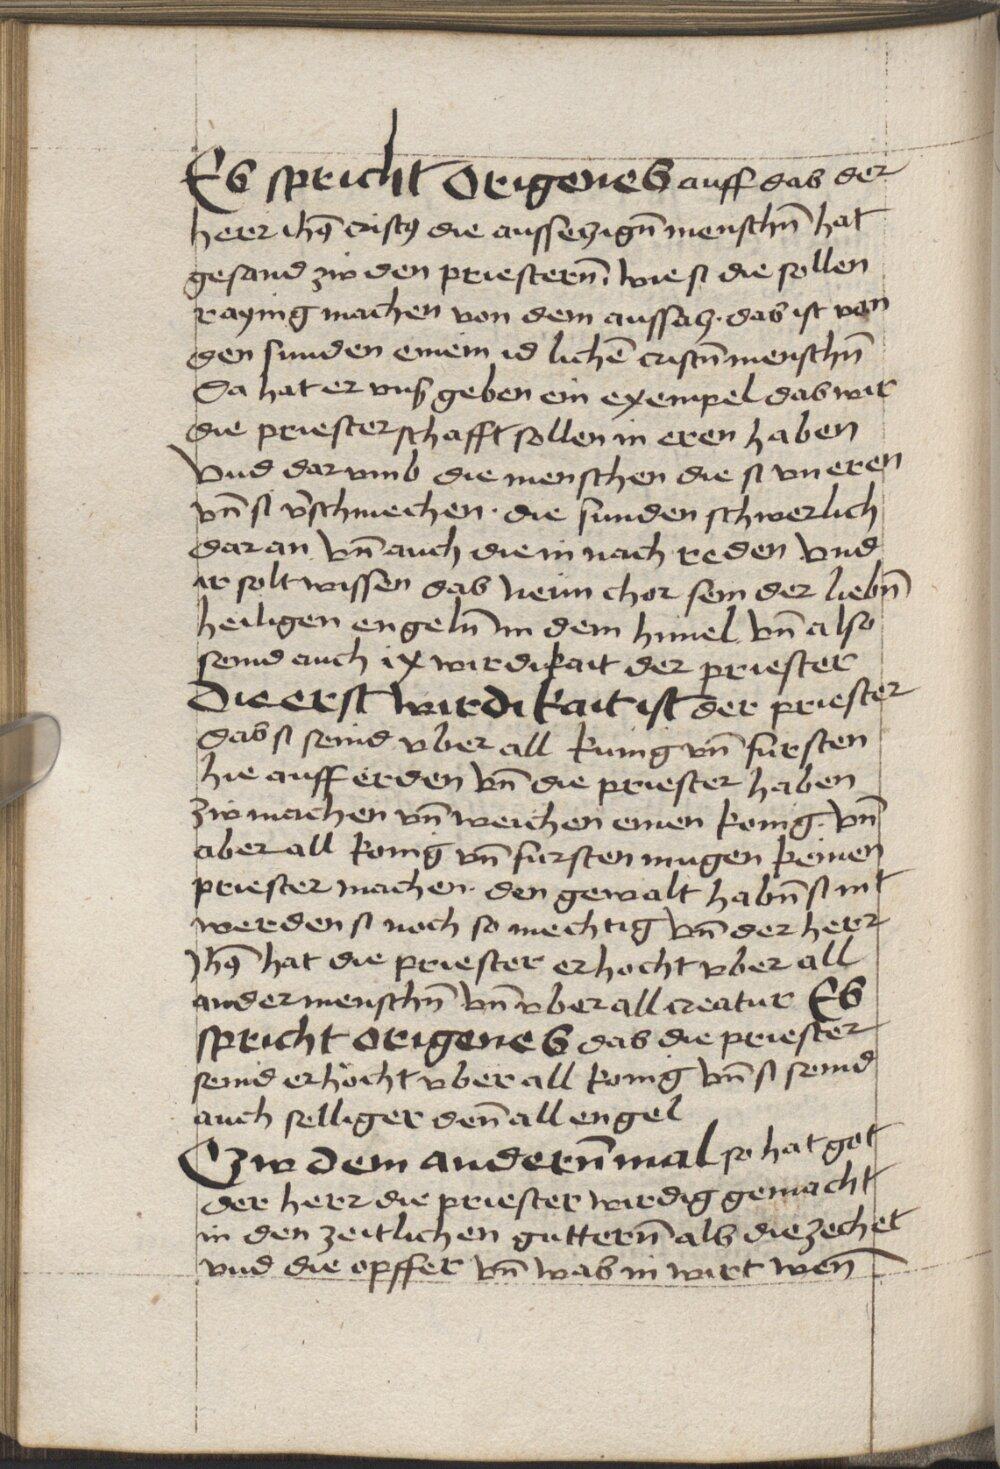 Es spricht Origenes auff das der
herr ihꝰ cristꝰ die aussetzigñ menschñ hat
gesand zw den priesterñ. wie si die sollen
raying machen von dem aussatz. das ist von
den sunden einem id lichē cristñ menschñ
Da hat er vns geben ein exempel das wir
die priesterschafft sollen in eren haben
Vnd dar vmb die menschen die si vneren
vñ si v̄schmechen. die sunden schwerlich
dar an Vñ auch die in nach reden Vnd
ir solt wissen das Neün chor sein der liebñ
heiligen engelñ in dem himel Vñ also
seind auch ix wirdikait der priester
Die erst wirdikait ist der priester
das si seind vber all kunig vñ fursten
hie auff erden Vñ die priester haben
zw machen vñ weichen einen konig. Vñ
aber all konig vñ fursten mugen keinen
priester machen. den gewalt habñ si nit
werden si noch so mechtig Vñ der herr
Ihꝰ hat die priester erhocht vber all
ander menschñ Vñ vber all creatur Es
spricht origenes das die priester
seind erhöcht vber all konig Vñ si seind
auch selliger deñ all engel
Czw dem anderñ mal so hat got
der herr die priester wirdig gemacht
in den zeitlichen gutterñ als die zechet
vnd die opffer Vñ was in wirt weñ